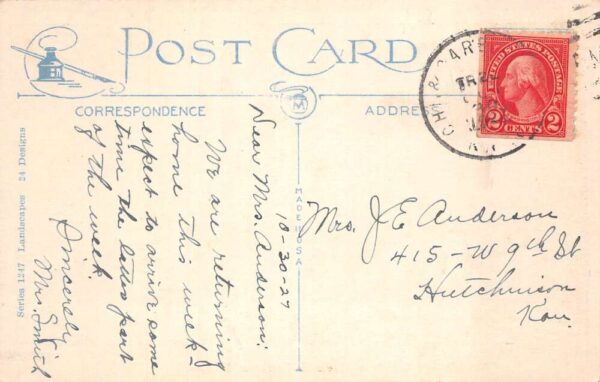 POST CARD
CORRESPONDENCE
ADDRESS
10-30-27
Dear Mrs. Anderson:
We are returning
home this week -
expect to arrive some
time the latter part
of the week.
Sincerely
Mrs. Smith
Mrs. J E Anderson
415-W 9th St
Hutchinson
Kan.
MADE IN USA
Series 1247 Landscapes 24 Designs
UNITED STATES POSTAGE
2 CENTS 2